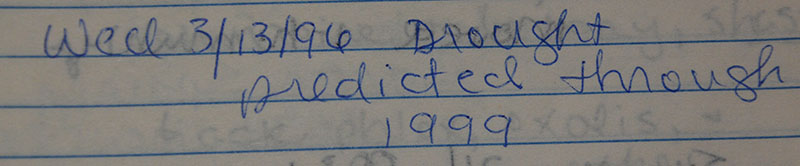 Wed 3/13/96 Drought
predicted through
1999